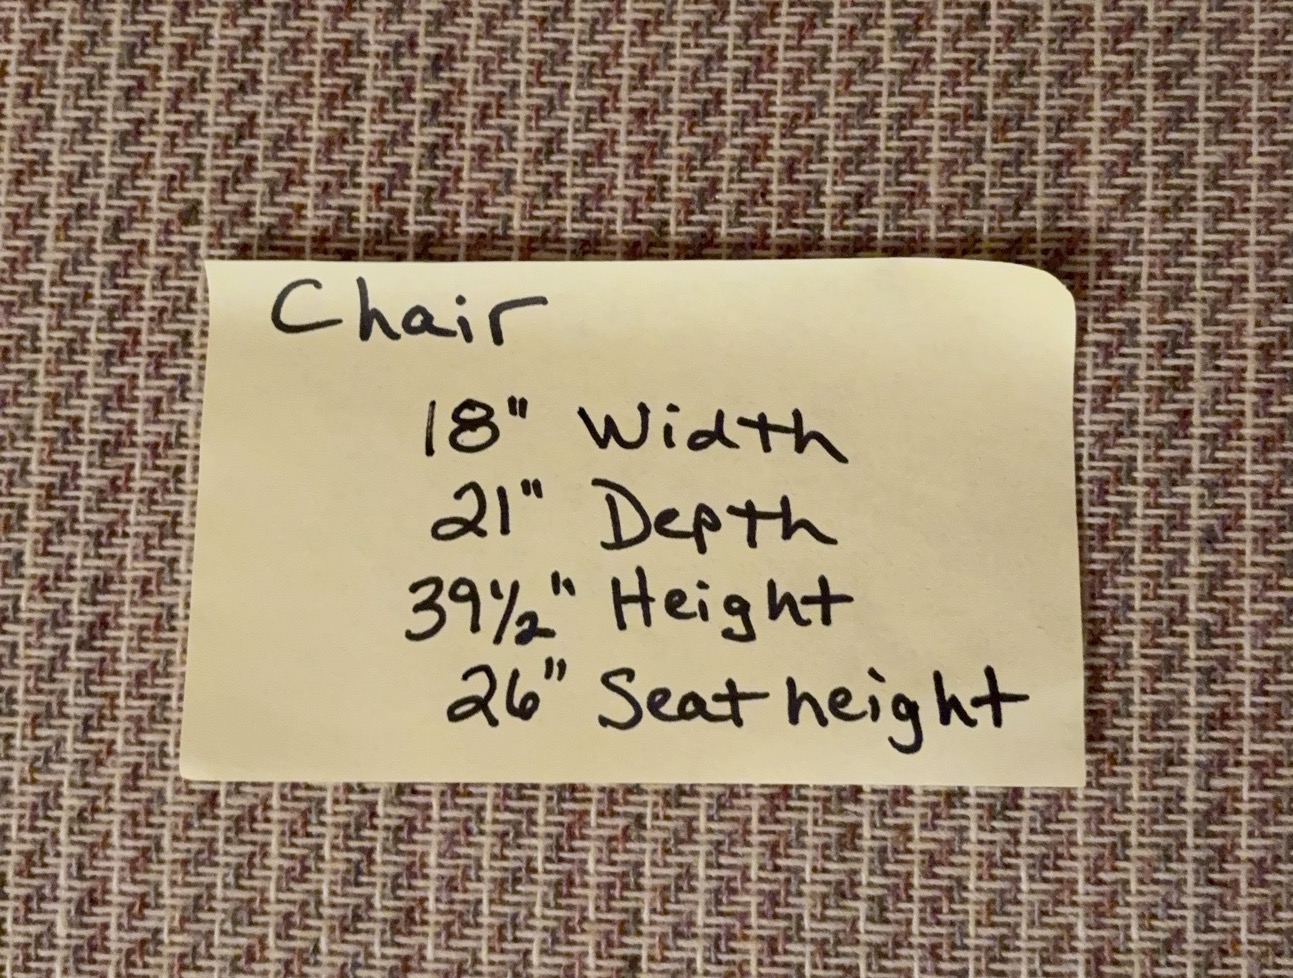 Chair
18" Width
21" Depth
39½" Height
26" Seat height